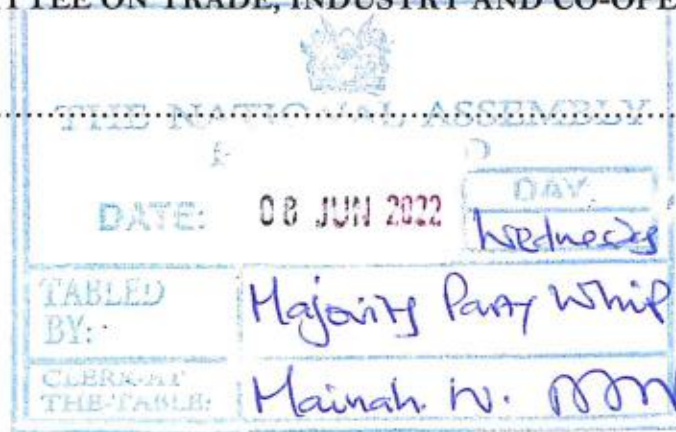 TTEE ON TRADE, INDUSTRY AND CO-OPE
THE NATIONAL ASSEMBLY
DATE: 08 JUN 2022 DAY
Wednesday
TABLED BY: Majority Party Whip
CLERK-AT
THE-TABLE: Mainah. W.